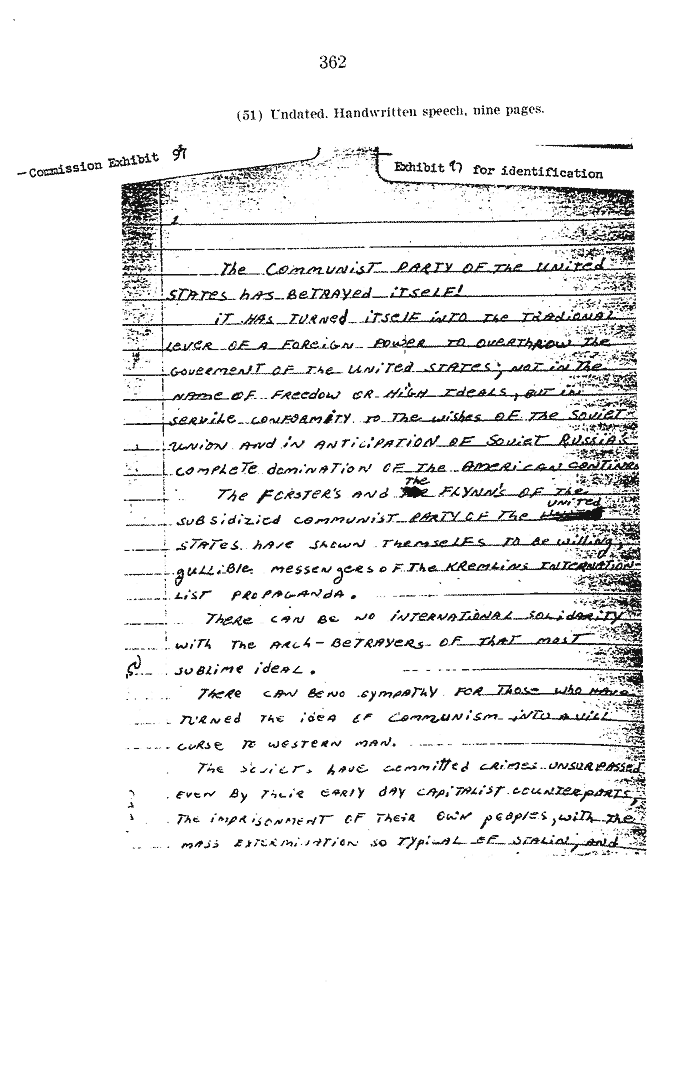 362
(51) Undated. Handwritten speech, nine pages.
Commission Exhibit 97
Exhibit 97 for identification
1
The Communist PARTY OF The United
STATES hAS BeTRAYed iTSelF!
iT HAS TURNed iTSelF iNTO The TRADIONAL
LEVER OF A FOReIGN POWER TO OVERTHROW The
GOVERMENT OF The UNiTed STATES; NOT iN The
NAME OF FReedOW OR HIGH IDEALS, BUT iN
SERVILE CONFORMITY TO The wishes OF The SOViET
UNION AND IN ANTICIPATION OF SOViET RUSSIA'S
COMPLETE domiNATION OF The AMERICAN CONTINE
The FORSTER'S AND The FLYNN'S OF The
SUBSIDIZIED COMMUNIST PARTY OF The UNITED
STATES hAVE ShOWN TheMSELFES TO Be willing,
gULLIBLE MESSENgERS OF The KREMLINS INTERNATION-
LIST PROPAGANDA.
TheRE CAN BE NO INTERNATIONAL SOLIdARITY
WITH The ARCH-BeTRAYERS OF THAT MOST
SUBLIME IDEAL.
TheRE CAN BE NO SYMPATHY FOR Those who HAVE
TURNED The IDEA OF COMMUNISM INTO A VILL
CURSE TO WESTERN MAN.
The SOVIETS hAVE COMMITTED CRIMES UNSURPASSED
EVEN BY TheIR EARLY DAY CAPITALIST COUNTERPARTS,
The IMPRISONMENT OF TheIR OWN PEOPLES, with The
MASS EXTERMINATION SO TYPICAL OF STALIN, And